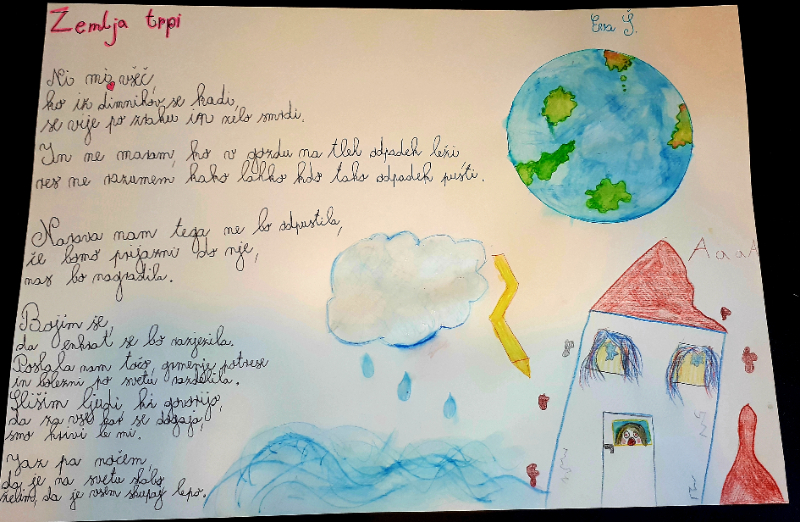 Zemlja trpi
Eva Š.
Ni mi všeč,
ko iz dimnikov se kadi,
se vije po zraku in zelo smrdi.
In ne maram, ko v gozdu na tleh odpadek leži
res ne razumem kako lahko kdo tako odpadek pusti.
Narava nam tega ne bo odpustila,
če bomo prijazni do nje,
nas bo nagradila.
Bojim se,
da enkrat se bo razjezila.
Poslala nam točo, grmenje, potrese
in bolezni po svetu razdelila.
Slišim ljudi ki govorijo,
da za vse kar se dogaja,
smo krivi le mi.
Jaz pa nočem,
da je na svetu slabo,
želim, da je vsem skupaj lepo.
AaaA